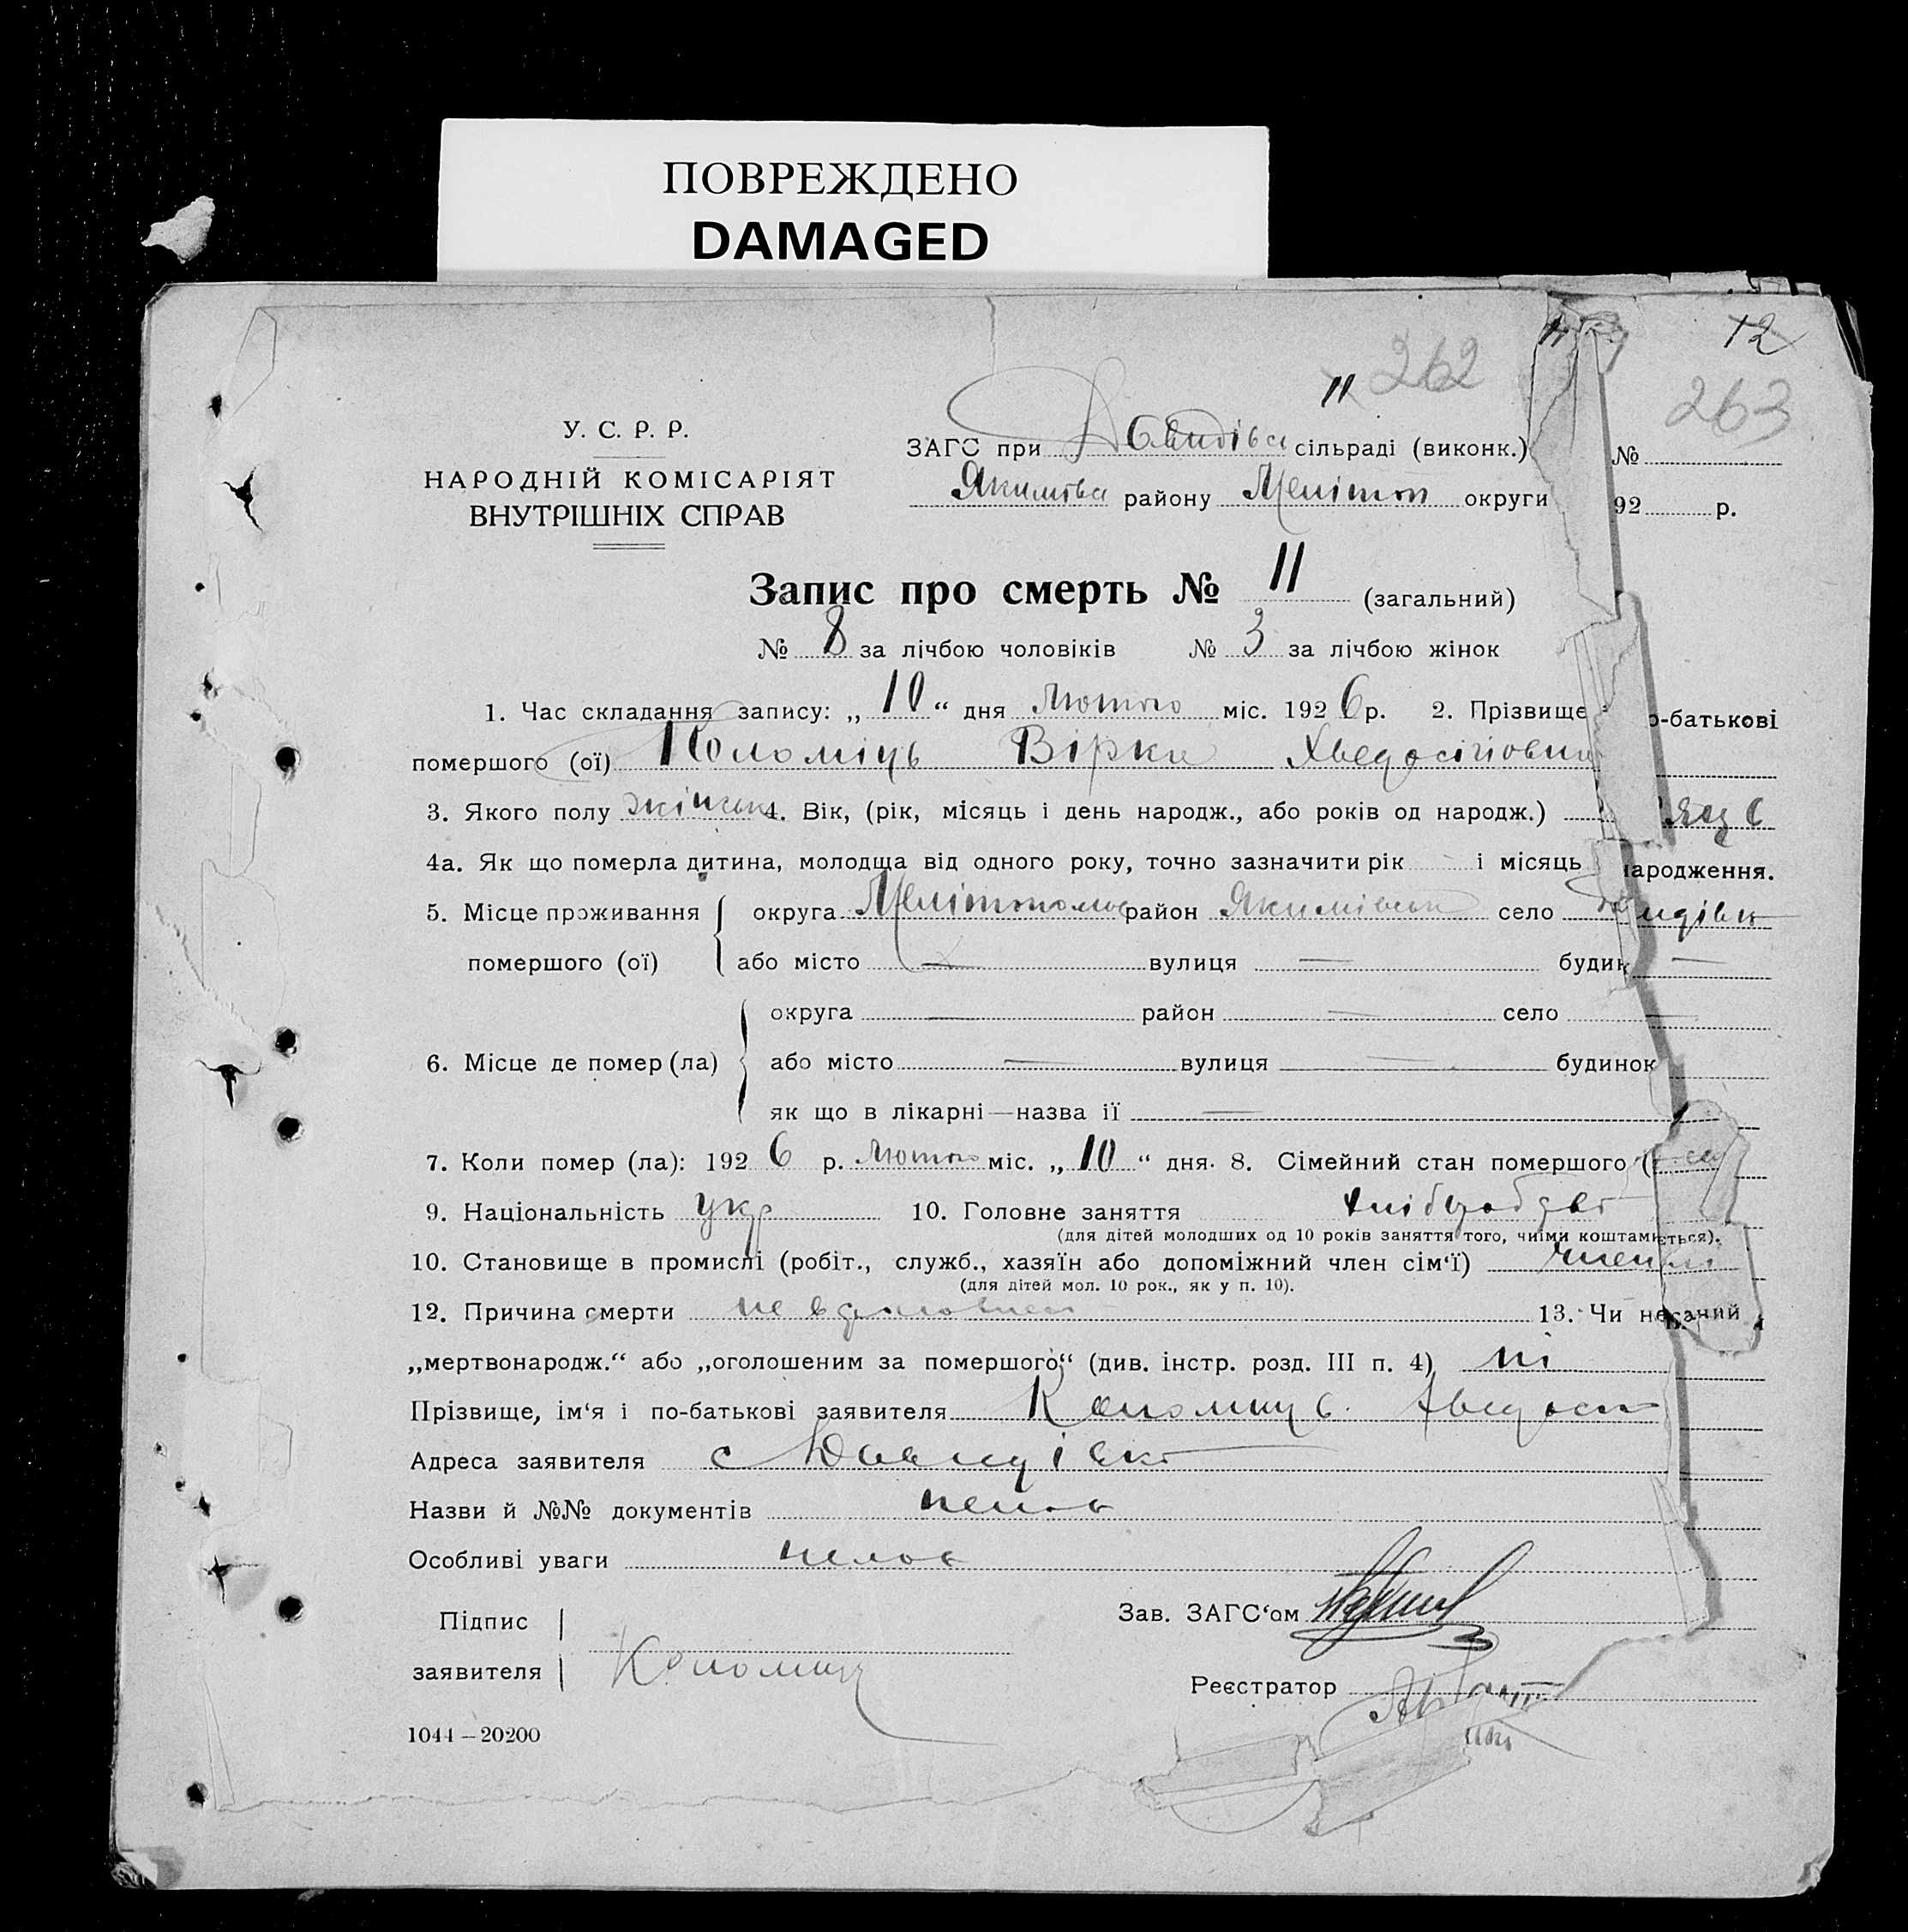 ПОВРЕЖДЕНО
DAMAGED
12
11 262
263
У. С. Р. Р.
НАРОДНІЙ КОМІСАРІЯТ
ВНУТРІШНІХ СПРАВ
ЗАГС при сільраді (виконк.) №
Якимівс району Меліт округи 92 р.
Запис про смерть № 11 (загальний)
№ 8 за лічбою чоловіків № 3 за лічбою жінок
1. Час складання запису: „ 10 “ дня Лютого міс. 1926 р. 2. Прізвище о-батькові
помершого (ої) Коломіць Вірка
3. Якого полу жіноч 4. Вік, (рік, місяць і день народж., або років од народж.)
4а. Як що померла дитина, молодща від одного року, точно зазначити рік — і місяць народження.
5. Місце проживання округа Мелітополь район Якимівськ село
помершого (ої) або місто — вулиця — будин —
округа — район — село —
6. Місце де помер (ла) або місто — вулиця — будинок
як що в лікарні—назва ії —
7. Коли помер (ла): 1926 р. Лютого міс. „ 10 “ дня. 8. Сімейний стан помершого (
9. Національність укр 10. Головне заняття хліборобство
(для дітей молодших од 10 років заняття того, чиїми коштами ється).
10. Становище в промислі (робіт., служб., хазяїн або допоміжний член сім'ї) член
(для дітей мол. 10 рок., як у п. 10).
12. Причина смерти не 13. Чи не заний
„мертвонародж.“ або „оголошеним за помершого“ (див. інстр. розд. III п. 4) ні
Прізвище, ім'я і по-батькові заявителя Коломиць
Адреса заявителя с Давидівка
Назви й №№ документів немає
Особливі уваги немає
Підпис
заявителя Коломиць
Зав. ЗАГС'ом
Реєстратор
1044—20200